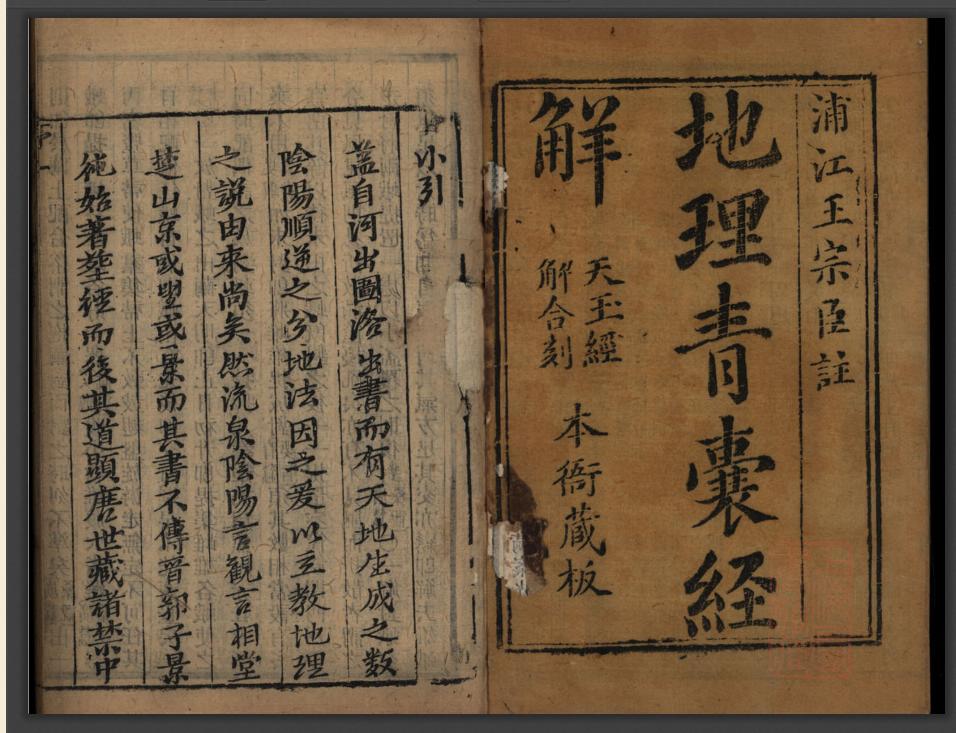 浦江王宗臣註
地理青囊経
解
天玉經
解合刻
本衙蔵板
小引
蓋自河出圖洛出書而有天地生成之数
陰陽順逆之分地法因之爰以立教地理
之説由来尚矣然流泉陰陽言観言相堂
楚山京或朢或景而其書不傳晋郭子景
純始著塟經而後其道顯唐世藏諸禁中